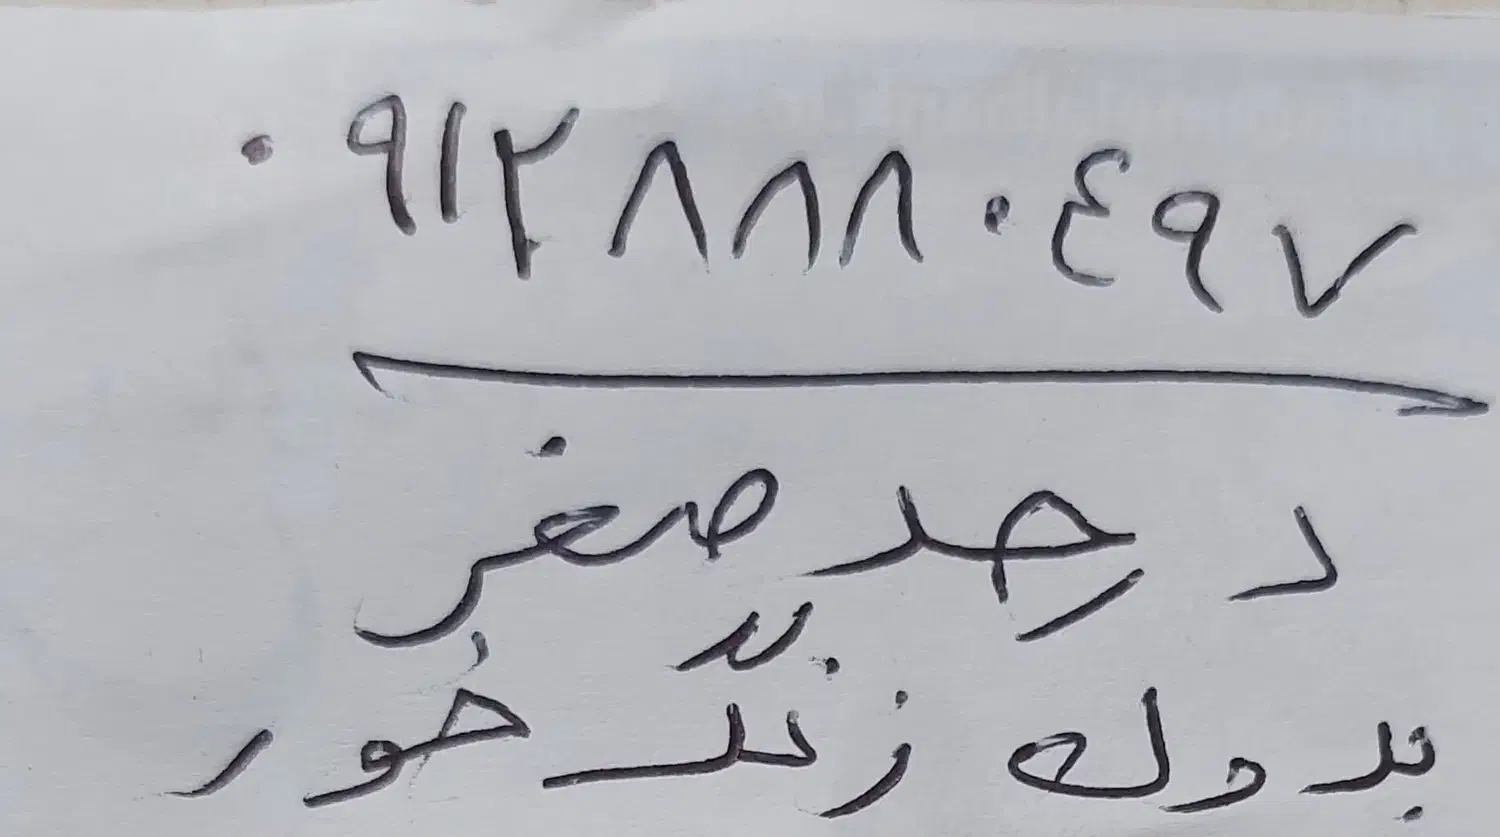 ۰۹۱۲۸۸۸۰٤۹۷
در حد صفر
بدون رنگ خور